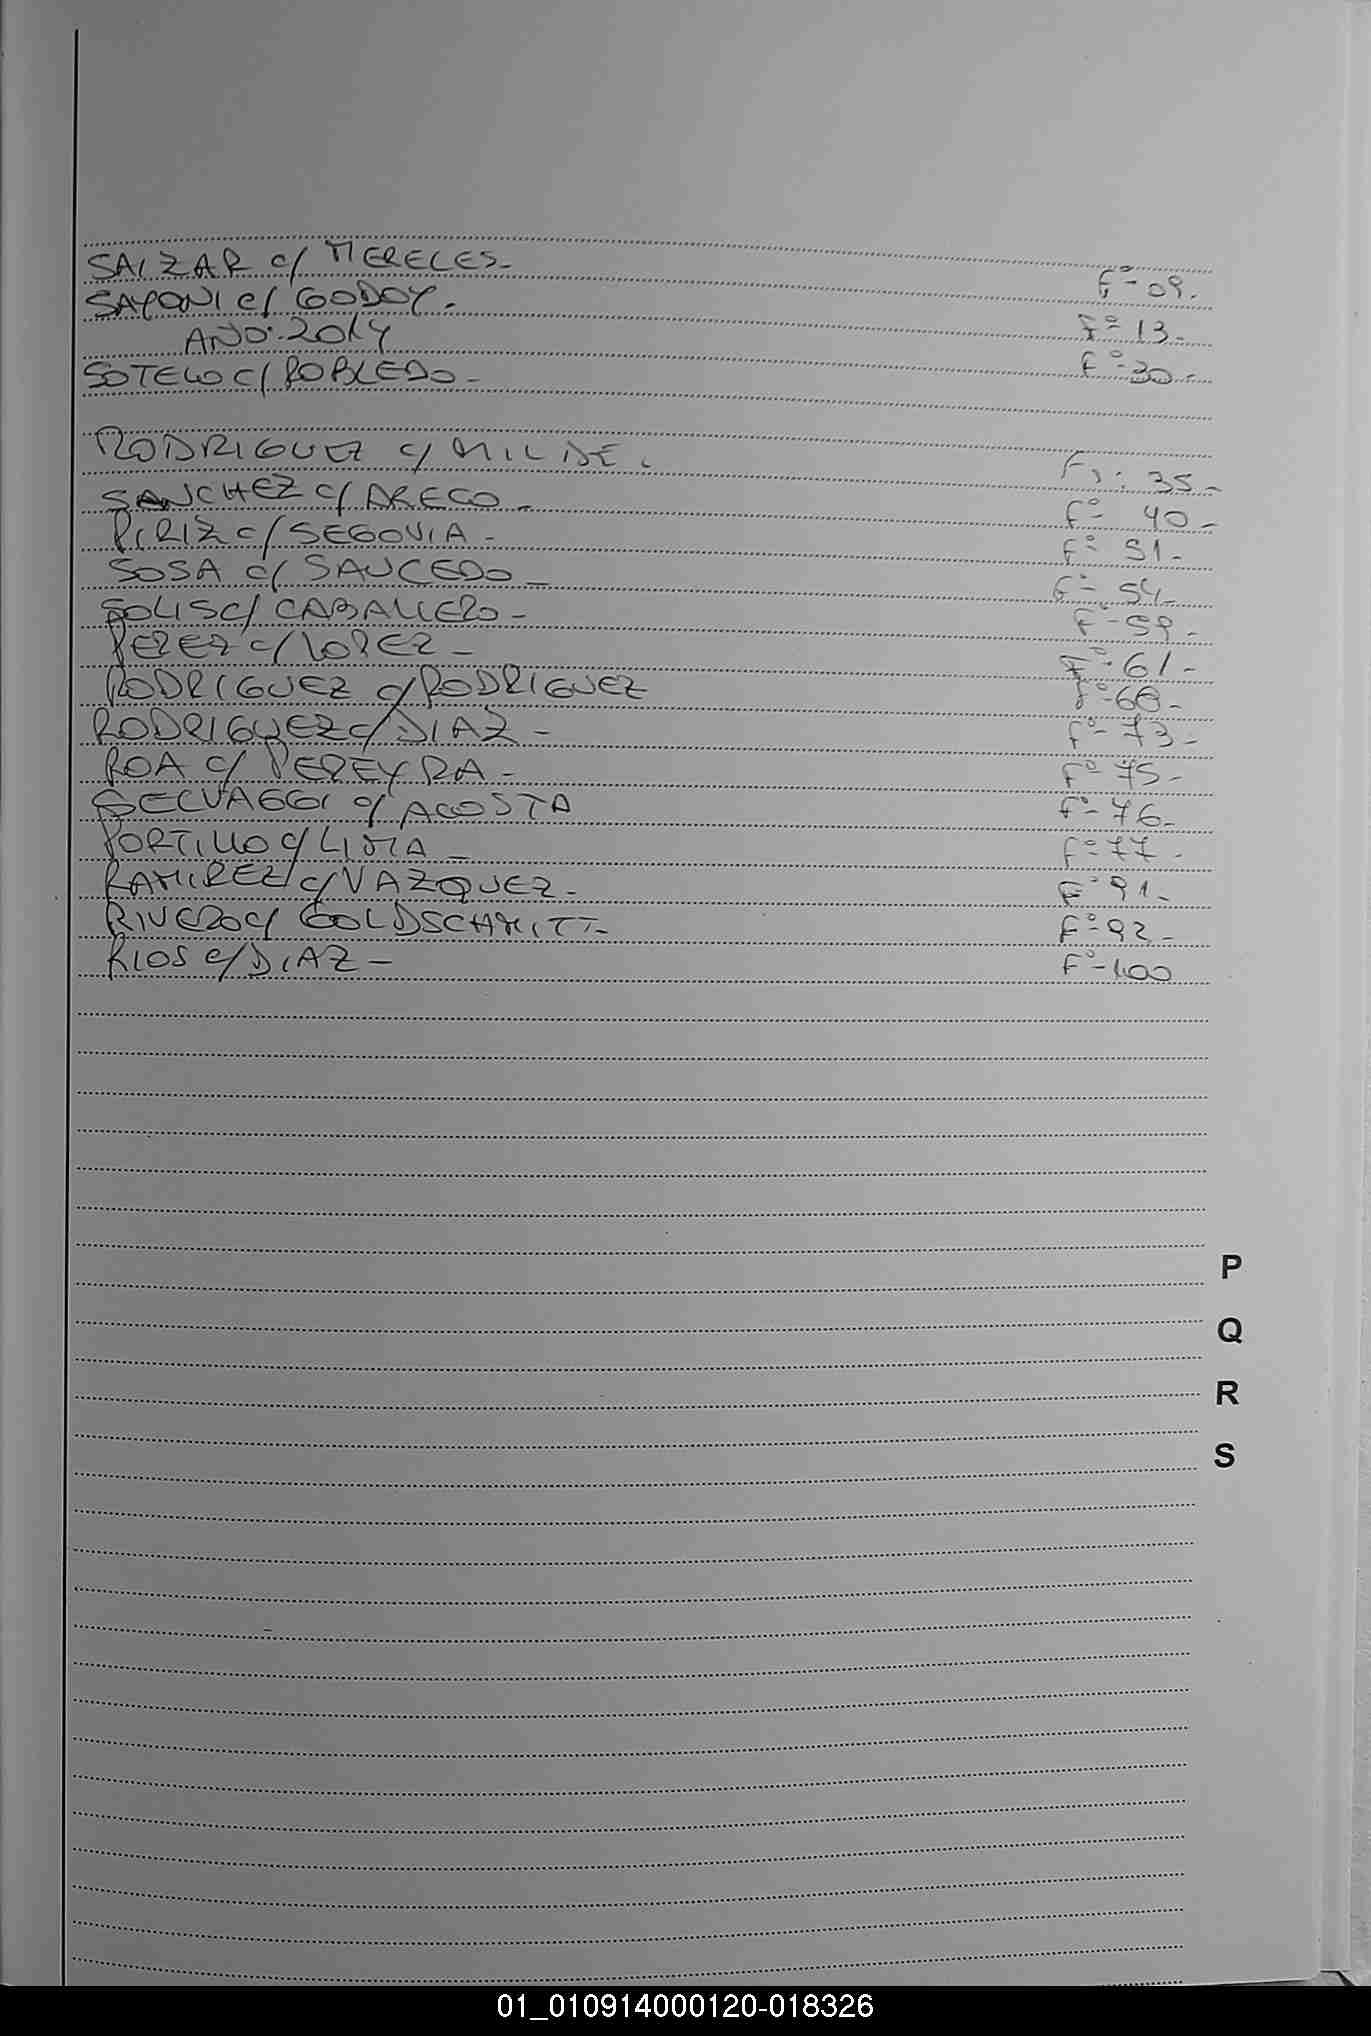 SALZAR c/ MERELES- F°-09.
SAPONI c/ GODOY. F°=13-
AÑO:2014
SOTELO c/ ROBLEDO- F°-30-
RODRIGUEZ c/ MILDE. Fs: 35-
SANCHEZ c/ ARECO- F°- 40-
PIRIZ c/ SEGOVIA- F°- 51-
SOSA c/ SAUCEDO- F°- 54-
SOLIS c/ CABALLERO- F°-59-
PEREZ c/ LOPEZ- F°-61-
RODRIGUEZ c/ RODRIGUEZ F°-68-
RODRIGUEZ c/ DIAZ- F°-73-
ROA c/ PEREYRA- F°-75-
SELVAGGI c/ ACOSTA F°-76-
PORTILLO c/ LIMA- F°=77-
RAMIREZ c/ VAZQUEZ- F°-91-
RIVERO c/ GOLDSCHMITT- F°-92-
RIOS c/ DIAZ- F°-100
P
Q
R
S
01_010914000120-018326